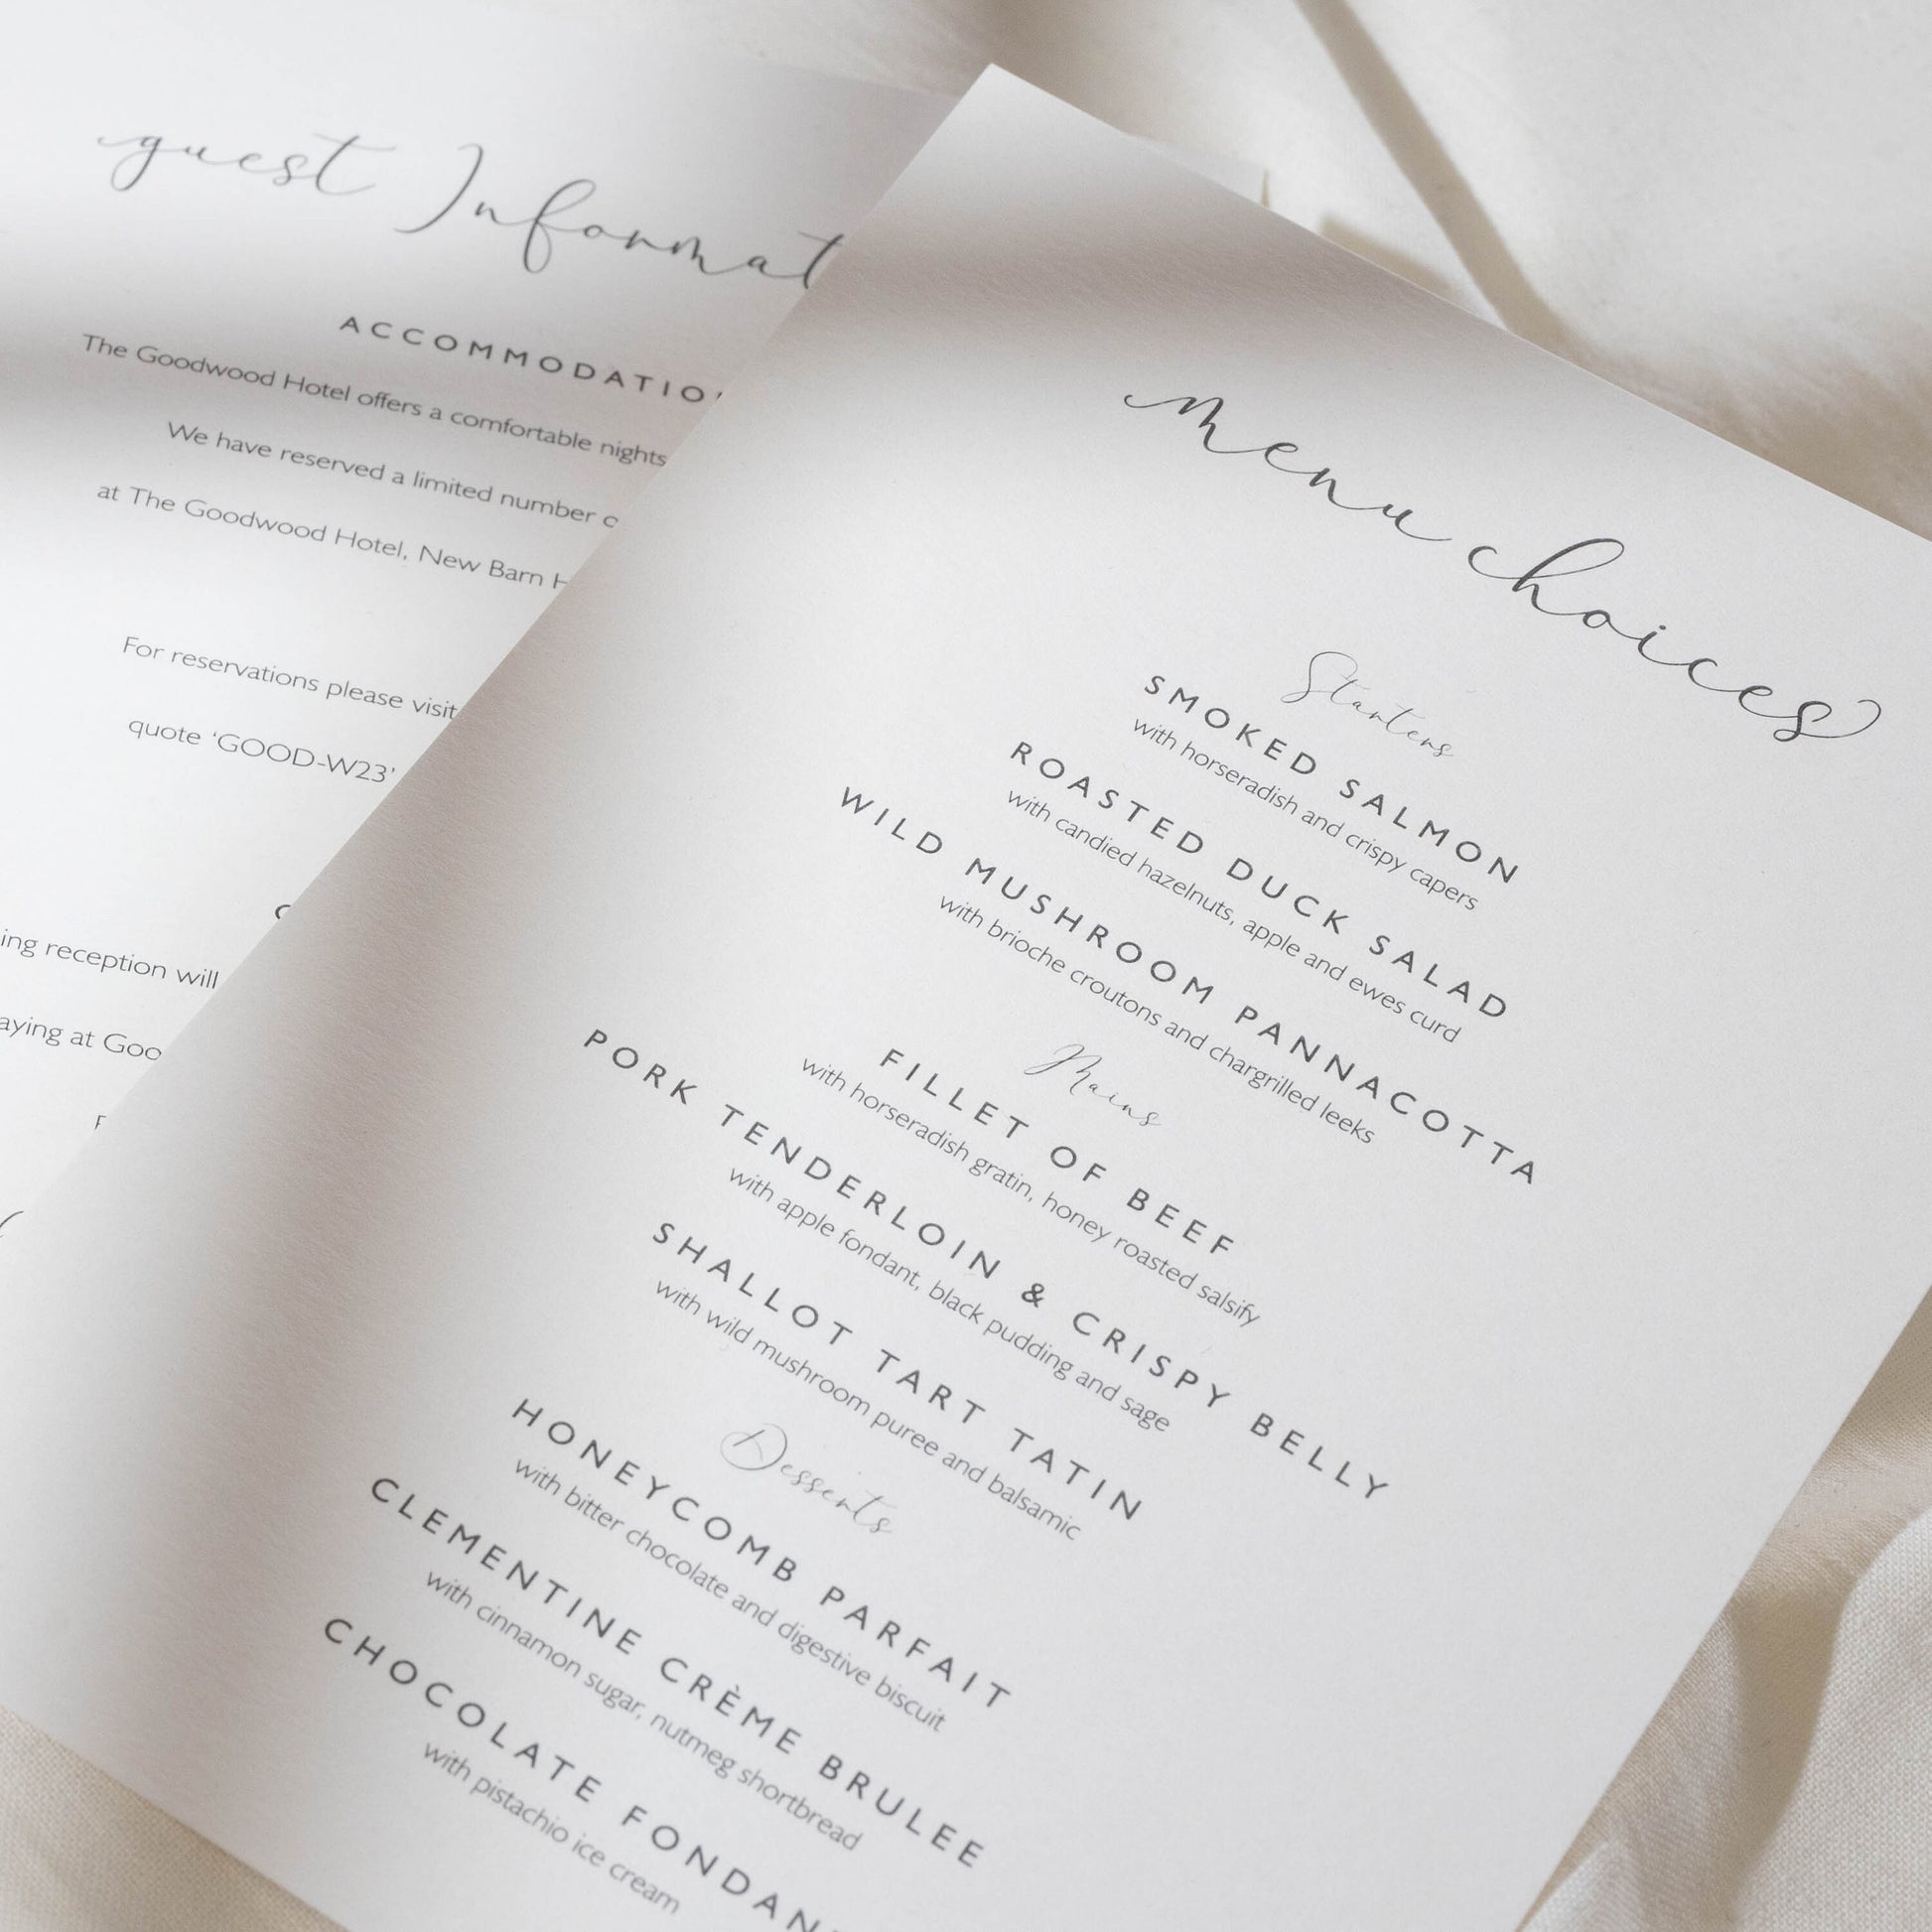 guest Informat
ACCOMMODATIO
The Goodwood Hotel offers a comfortable nights
We have reserved a limited number
at The Goodwood Hotel, New Barn
For reservations please visit
quote ‘GOOD-W23’
ing reception will
aying at Goo
menu choices
Starters
SMOKED SALMON
with horseradish and crispy capers
ROASTED DUCK SALAD
with candied hazelnuts, apple and ewes curd
WILD MUSHROOM PANNACOTTA
with brioche croutons and chargrilled leeks
Mains
FILLET OF BEEF
with horseradish gratin, honey roasted salsify
PORK TENDERLOIN & CRISPY BELLY
with apple fondant, black pudding and sage
SHALLOT TART TATIN
with wild mushroom puree and balsamic
Desserts
HONEYCOMB PARFAIT
with bitter chocolate and digestive biscuit
CLEMENTINE CRÈME BRULEE
with cinnamon sugar, nutmeg shortbread
CHOCOLATE FONDAN
with pistachio ice cream